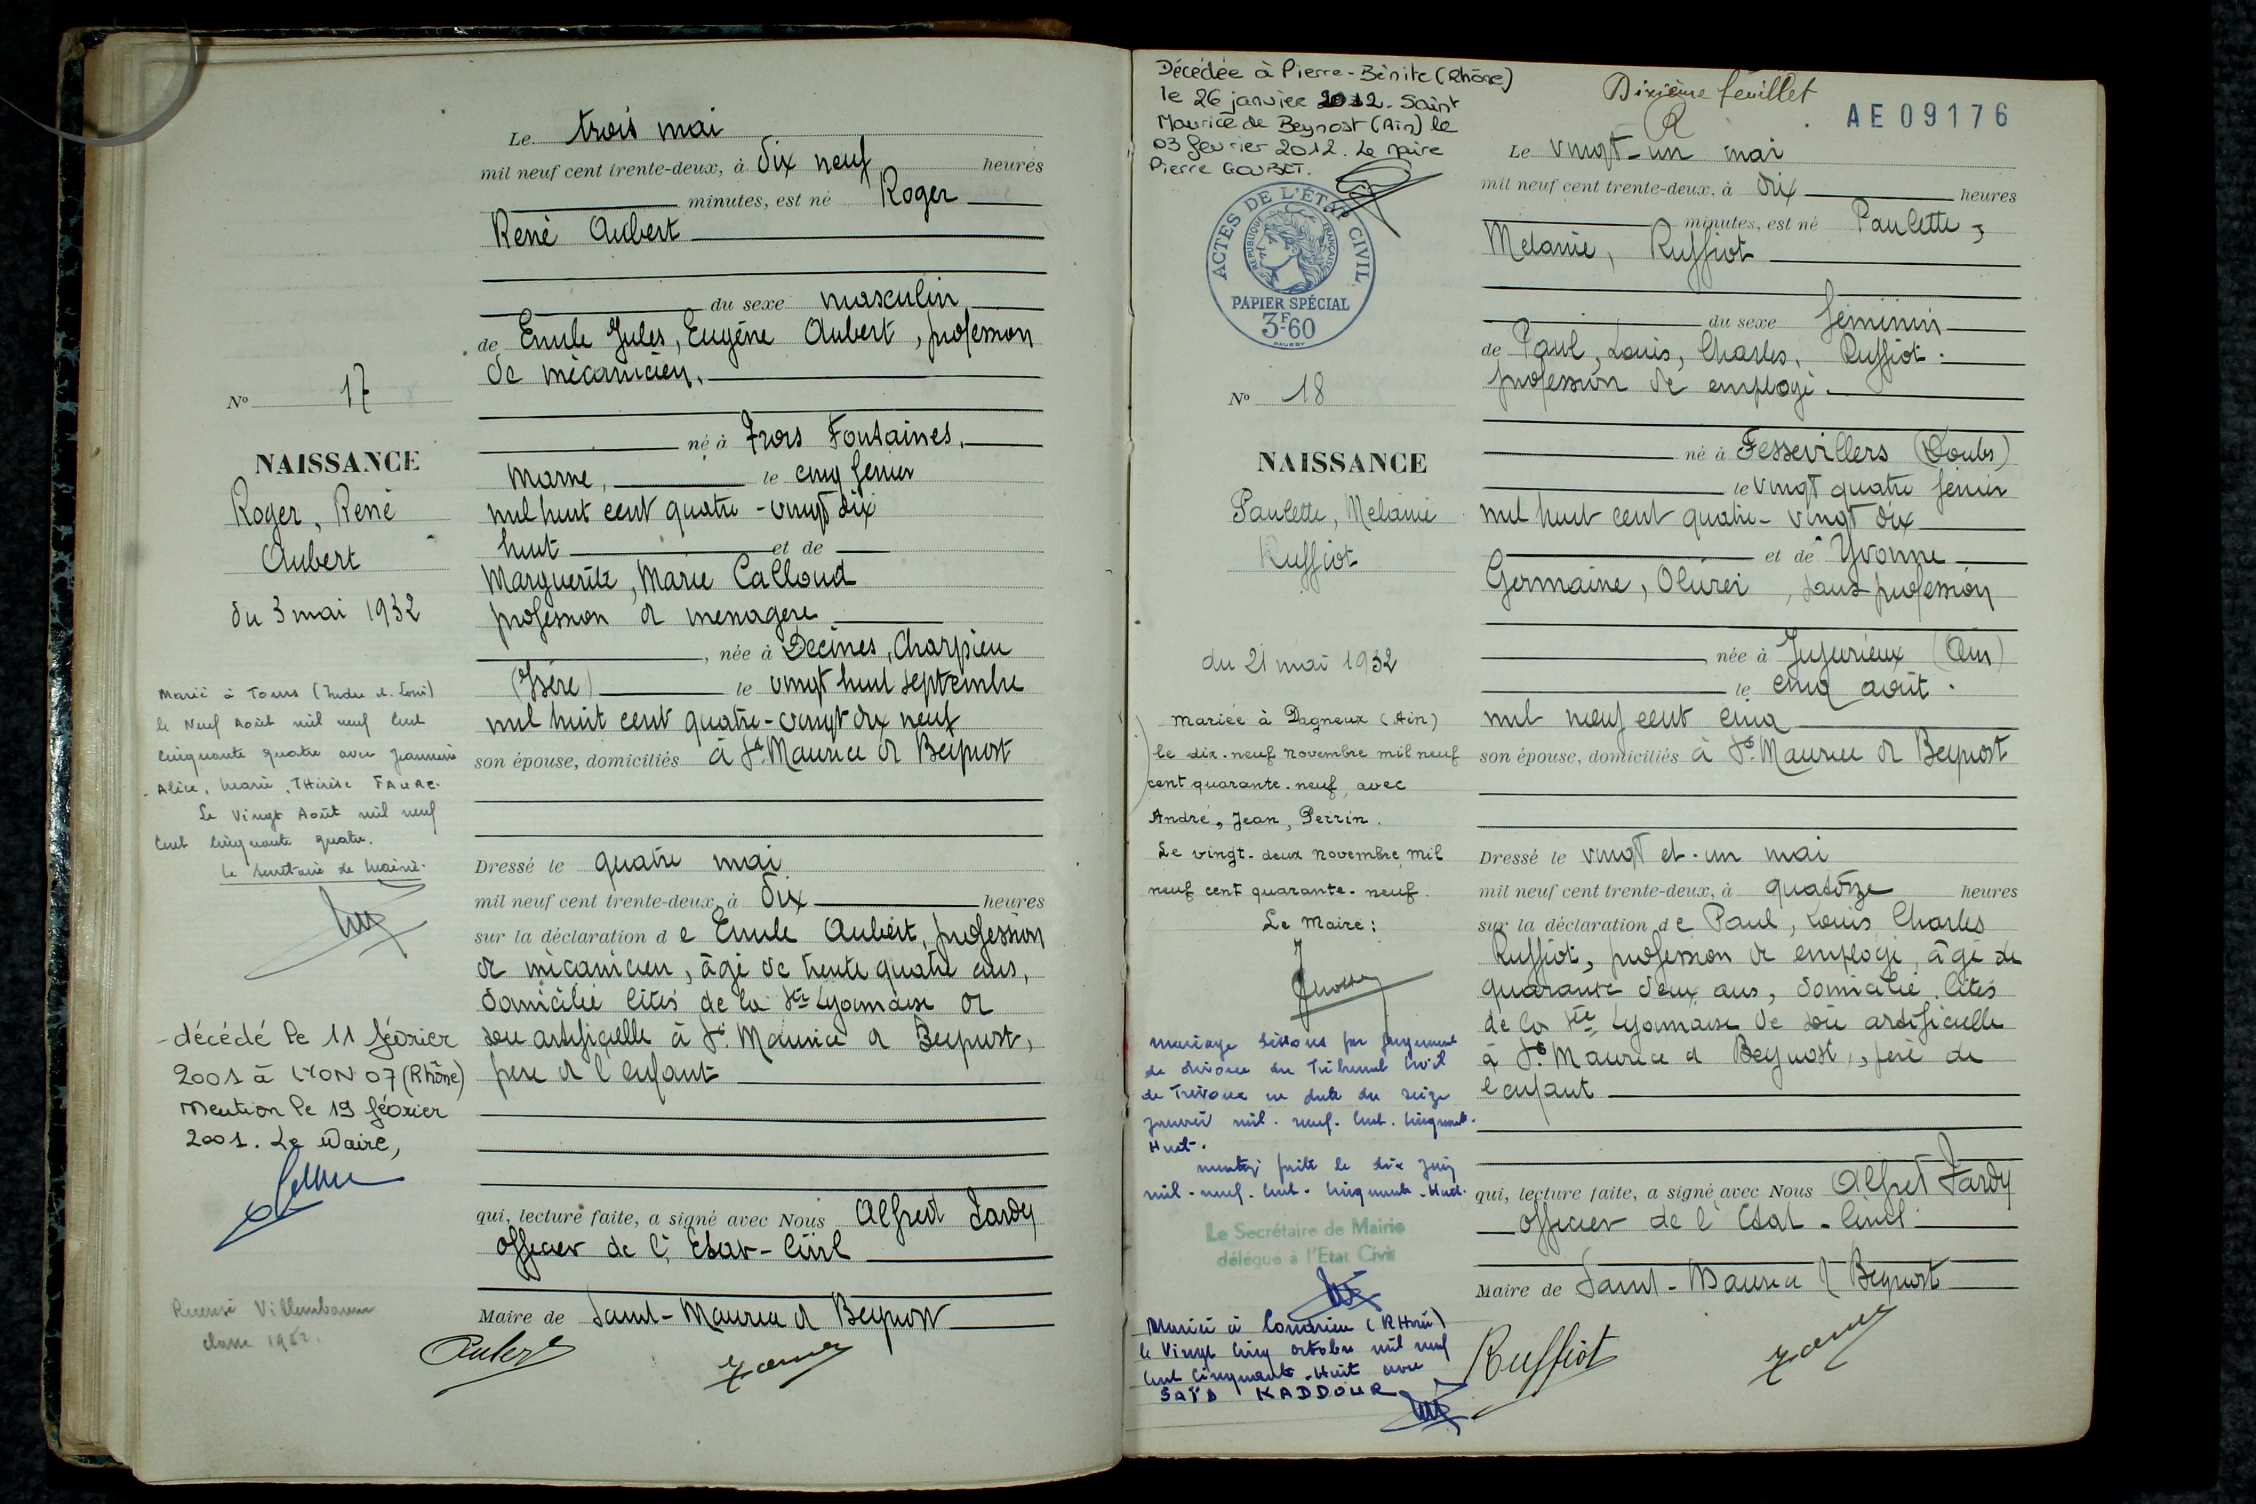 Le trois mai
mil neuf cent trente-deux, à dix neuf heures
minutes, est né Roger
René Aubert
du sexe masculin
de Emile Jules, Eugène Aubert, profession
de mécanicien.
né à Trois Fontaines,
Marne, le cinq février
mil huit cent quatre-vingt dix
huit et de
Marguerite, Marie Calloud
profession de menagere
, née à Decines, Charpieu
(Isère) le vingt huit septembre
mil huit cent quatre-vingt dix neuf
son épouse, domiciliés à St Maurice de Beynost
Dressé le quatre mai
mil neuf cent trente-deux, à dix heures
sur la déclaration de Emile Aubert, profession
de mécanicien, âgé de trente quatre ans,
domicilié cités de la Sté Lyonnaise de
soie artificielle à St Maurice de Beynost,
père de l'enfant
qui, lecture faite, a signé avec Nous Alfred Jardy
officier de l'Etat-Civil
Maire de Saint-Maurice de Beynost
Aubert
No 17
NAISSANCE
Roger, René
Aubert
du 3 mai 1932
Marié à Tours (Indre et Loire)
le Neuf Août mil neuf cent
cinquante quatre avec Jeannine
Alice, Marie, Thérèse FAURE.
Le Vingt Août mil neuf
cent cinquante quatre.
Le Secrétaire de Mairie.
décédé le 11 février
2001 à LYON 07 (Rhône)
Mention le 19 février
2001. Le Maire,
Recensé Villeurbanne
classe 1952.
Décédée à Pierre-Bénite (Rhône)
le 26 janvier 2012. Saint
Maurice de Beynost (Ain) le
03 février 2012. Le Maire
Pierre GOUBET.
ACTES DE L'ÉTAT CIVIL
RÉPUBLIQUE FRANÇAISE
PAPIER SPÉCIAL
3F.60
No 18
NAISSANCE
Paulette, Melanie
Ruffiot
du 21 mai 1932
Mariée à Dagneux (Ain)
le dix-neuf novembre mil neuf
cent quarante-neuf, avec
André, Jean, Perrin.
Le vingt-deux novembre mil
neuf cent quarante-neuf.
Le Maire:
Mariage dissous par jugement
de divorce du Tribunal Civil
de Trévoux en date du seize
janvier mil-neuf-cent-cinquante-
Huit.
faite le dix juin
mil-neuf-cent-cinquante-Huit.
Le Secrétaire de Mairie
délégué à l'Etat Civil
Mariée à Condrieu (Rhône)
le Vingt cinq octobre mil neuf
cent cinquante-Huit avec
SAÏD KADDOUR
Dixième feuillet
AE09176
Le vingt-un mai
mil neuf cent trente-deux, à dix heures
minutes, est né Paulette,
Melanie, Ruffiot
du sexe féminin
de Paul, Louis, Charles, Ruffiot.
profession de employé.
né à Fessevillers (Doubs)
le vingt quatre février
mil huit cent quatre-vingt dix
et de Yvonne
Germaine, , sans profession
née à Jujurieux (Ain)
le cinq août.
mil neuf cent cinq
son épouse, domiciliés à St Maurice de Beynost
Dressé le vingt et-un mai
mil neuf cent trente-deux, à quatorze heures
sur la déclaration de Paul, Louis Charles
Ruffiot, profession de employé, âgé de
quarante deux ans, domicilié cités
de la Sté Lyonnaise de soie artificielle
à St Maurice de Beynost, père de
l'enfant
qui, lecture faite, a signé avec Nous Alfred Jardy
officier de l'Etat-Civil
Maire de Saint-Maurice de Beynost
Ruffiot